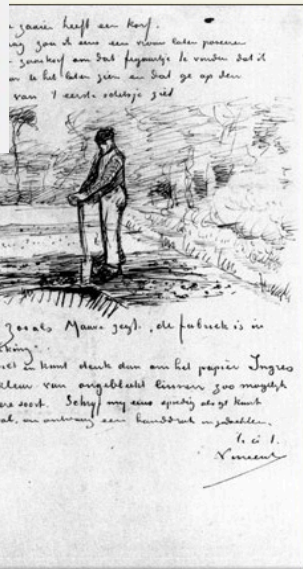 zaaier heeft een korf.
zou ik eens een vrouw laten poseeren
zaaikorf om dat figuurtje te vinden dat ik
te het laten zien en dat ge op den
van 't eerste schetsje ziet
zooals Mauve zegt, de fabriek is in
king"
en kunt denk dan om het papier Ingres
kleur van ongebleekt linnen zoo mogelijk
soort. Schrijf my eens spoedig als ge kunt
en ontvang een handdruk in gedachten.
t. à t.
Vincent